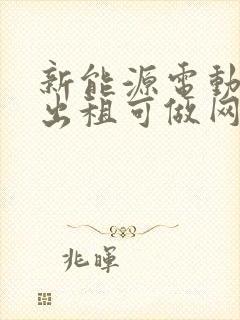 新能源電動
出租可做网
兆暉